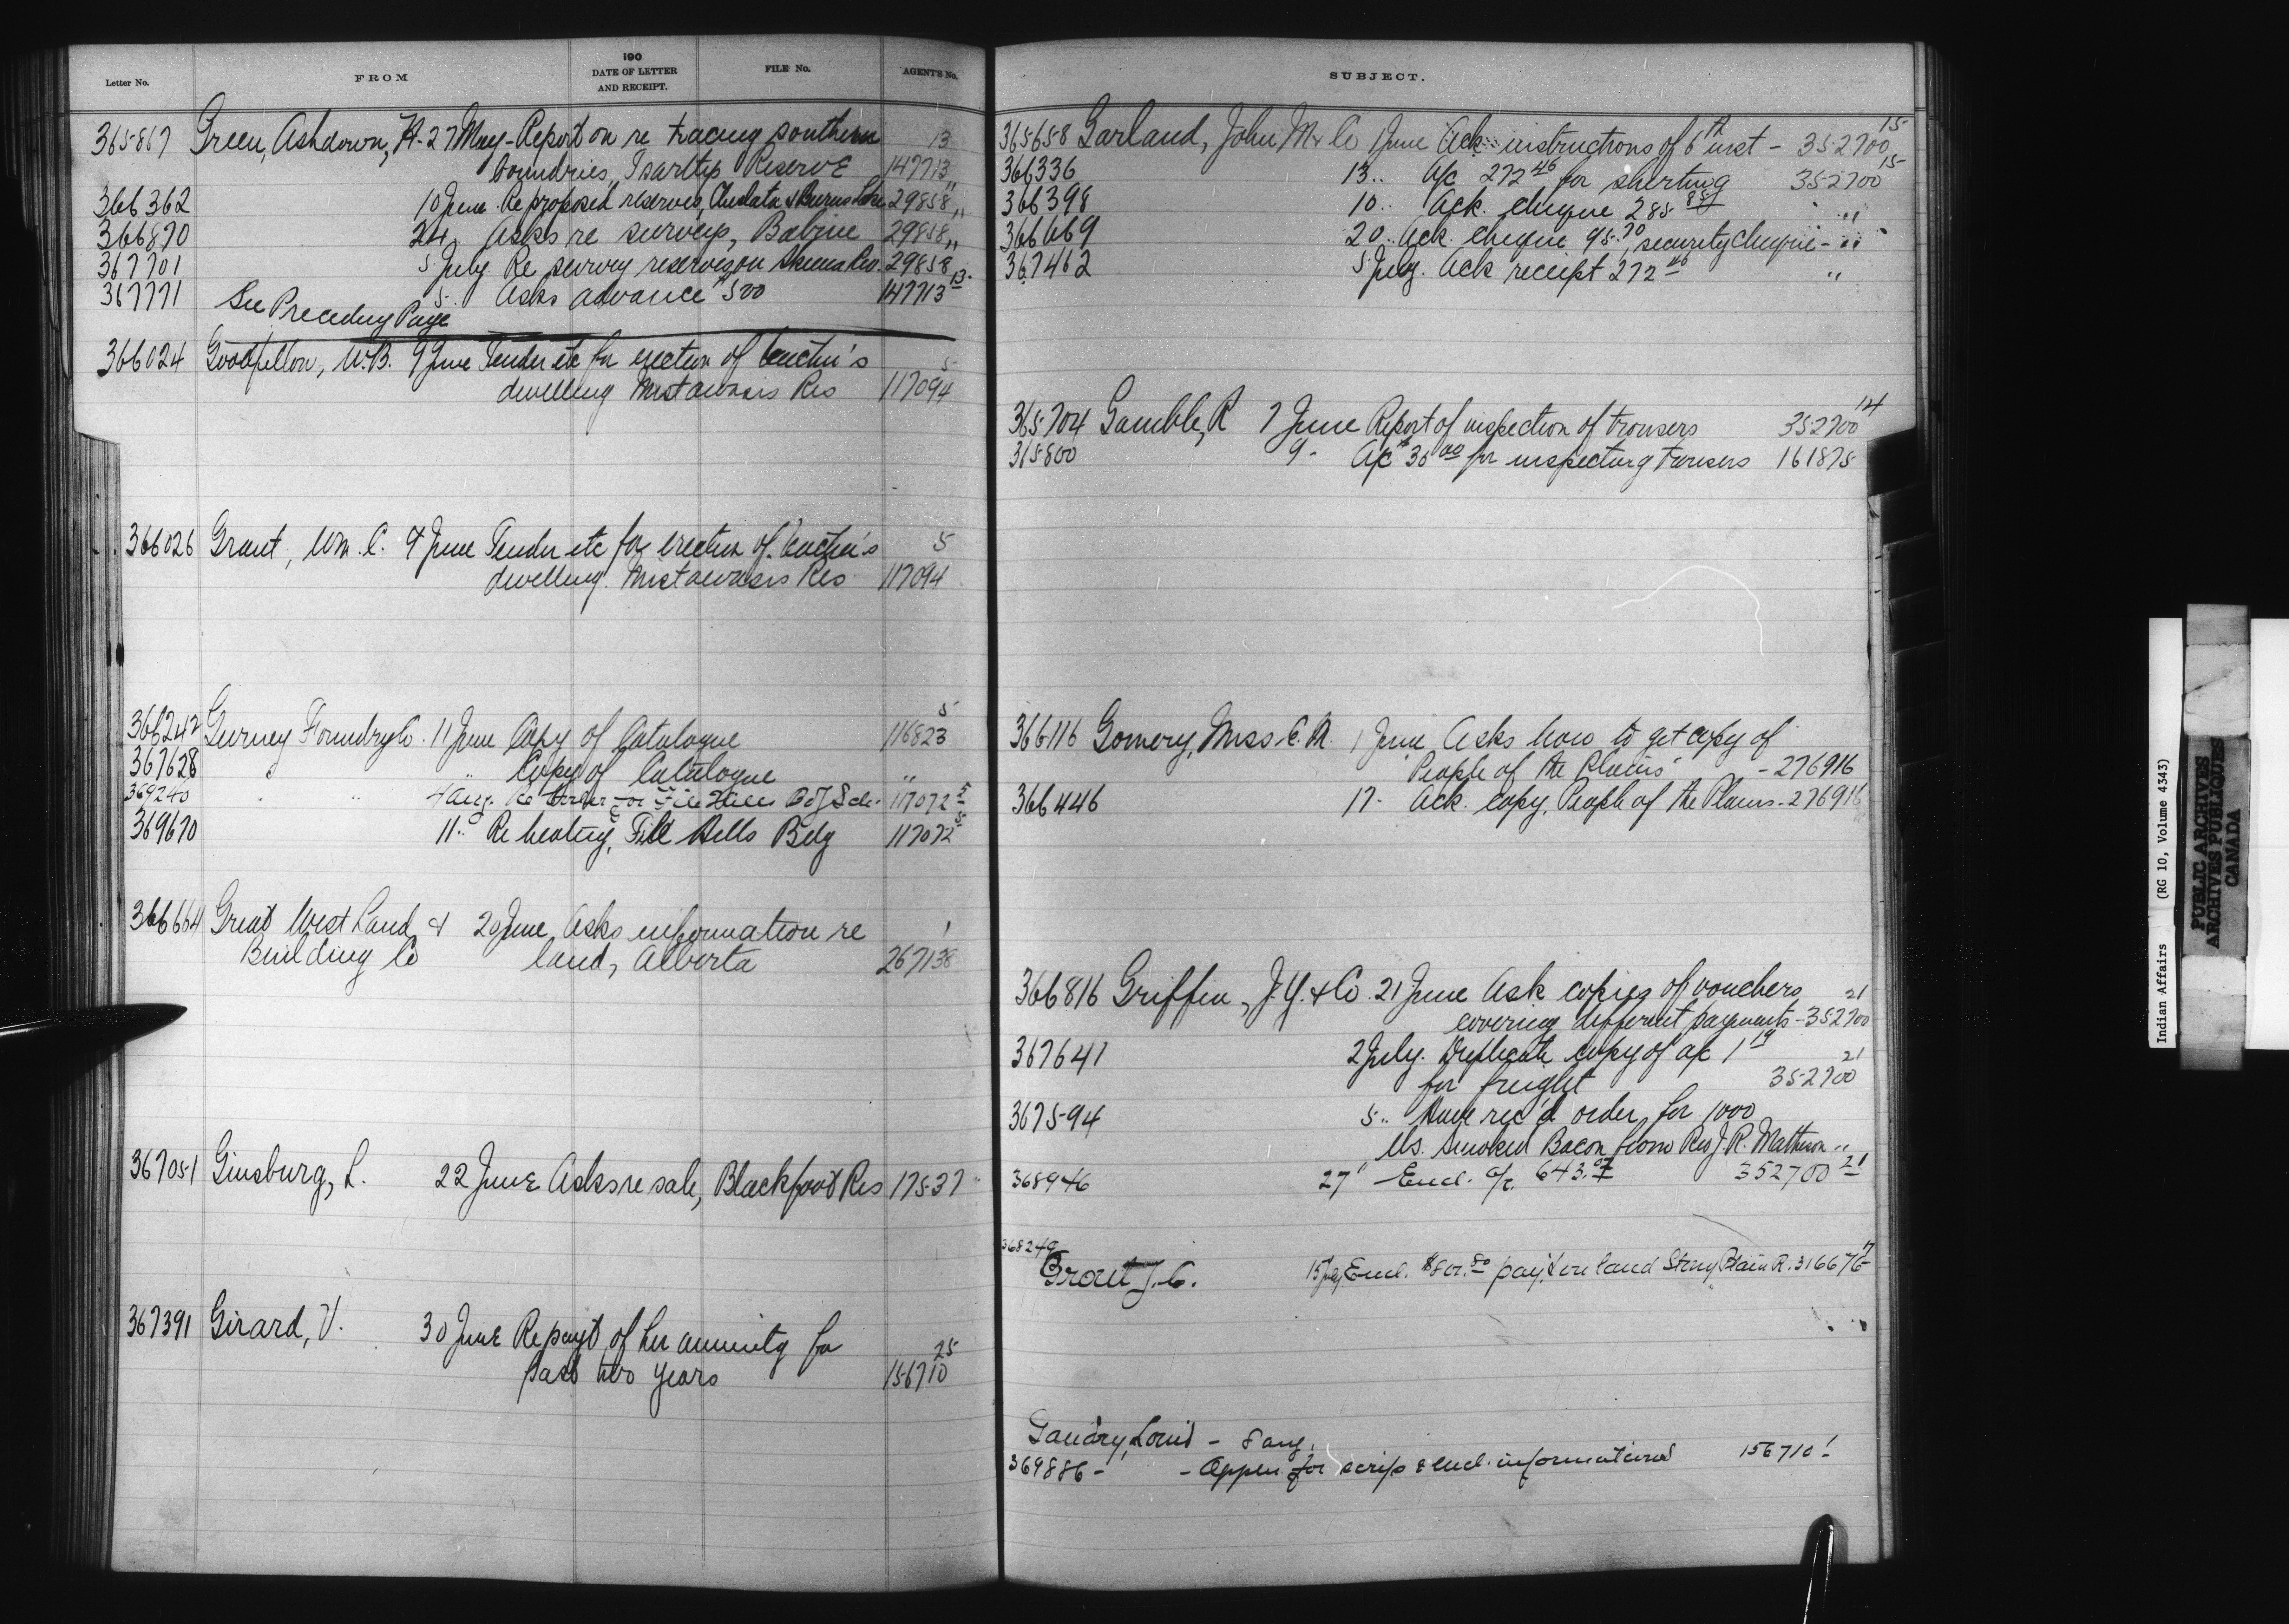 Letter No. FROM 190 DATE OF LETTER AND RECEIPT. FILE No. AGENT'S No.
365867 Green, Ashdown, H- 27 May- Report on re tracing southern 13
boundries, Reserve 147713
366362 10 June Re proposed reserves, 29858 "
366870 24 Asks re surveys, Babine 29858 "
367701 5 July Re survey reserves on Skeena Riv. 29858
367771 5 Asks advance $500 147713 13
See Preceding Page
366024 Goodfellow, W.B. 9 June Tender etc for erection of teacher's 5
dwelling Mistawasis Res 117094
366026 Grant, Wm. C. 9 June Tender etc for erection of teacher's 5
dwelling Mistawasis Res 117094
366242 Gurney Foundry Co. 11 June Copy of Catalogue 116823 5
367628 " " Copy of Catalogue "
369240 " " 4 Aug. Re for File Hills Sch. 117072 5
369670 11 " Re heating, File Hills Bdg 117072 5
366664 Great West Land & 20 June Asks information re 1
Building Co land, Alberta 267138
367051 Ginsburg, L. 22 June Asks re sale, Blackfoot Res 17537
367391 Girard, V. 30 June Re payt of her annuity for 25
past two years 156710
SUBJECT.
365658 Garland, John M & Co 1 June Ack instructions of 6th inst - 352700 15
366336 13 " A/c 272 46 for shirting 352700 15
366398 10 " Ack. cheque 285 88 "
366669 20 " Ack. cheque 95.70, security cheque - "
367462 5 July. Ack receipt 272 46 "
365704 Gamble, R 7 June Report of inspection of trousers 352700 14
365800 9 - A/c $30 00 for inspecting trousers 161875
366116 Gomery, Miss C. M. 1 June Asks how to get copy of
"People of the Plains" - 276916
366446 17 - Ack. copy, People of the Plains - 276916
366816 Griffin, J.Y. & Co. 21 June Ask copies of vouchers 21
covering different payments - 352700
367641 2 July. Duplicate copy of a/c 1 19 21
for freight 352700
367594 5 " Have rec'd order for 1000
lbs. smoked Bacon from Rev J.R. Matheson "
368946 27 " Encl. a/c. 643.07 352700 21
368249
Grant J.C. 15 July Encl. pay't on land Stony Plain R. 316676 17
Gaudry, Louis - 8 aug.
369886 - - Appln for scrip & encl. informations 156710 1
Indian Affairs (RG 10, Volume 4343)
PUBLIC ARCHIVES
ARCHIVES PUBLIQUES
CANADA